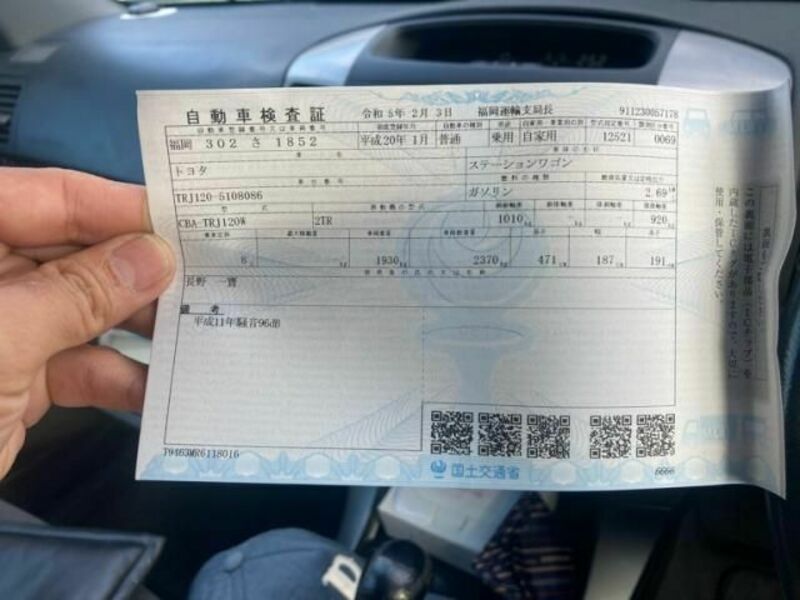 自動車検査証 令和 5年 2月 3日 福岡運輸支局長 911230057178
自動車登録番号又は車両番号 初度登録年月 自動車の種別 用途 自家用・事業用の別 型式指定番号 類別区分番号
福岡 302 さ 1852 平成20年 1月 普通 乗用 自家用 12521 0069
車名 車体の形状
トヨタ ステーションワゴン
車台番号 燃料の種類 総排気量又は定格出力
TRJ120-5108086 ガソリン 2.69
型式 原動機の型式 前前軸重 前後軸重 後前軸重 後後軸重
CBA-TRJ120W 2TR 1010 kg 920 kg
乗車定員 最大積載量 車両重量 車両総重量 長さ 幅 高さ
8 1930 kg 2370 kg 471 cm 187 cm 191 cm
使用者の氏名又は名称
長野 一寶
備考
平成11年騒音96dB
国土交通省
6666
この裏面には電子部品(ICチップ)を
内蔵したICタグがありますので、大切に
使用・保管してください。